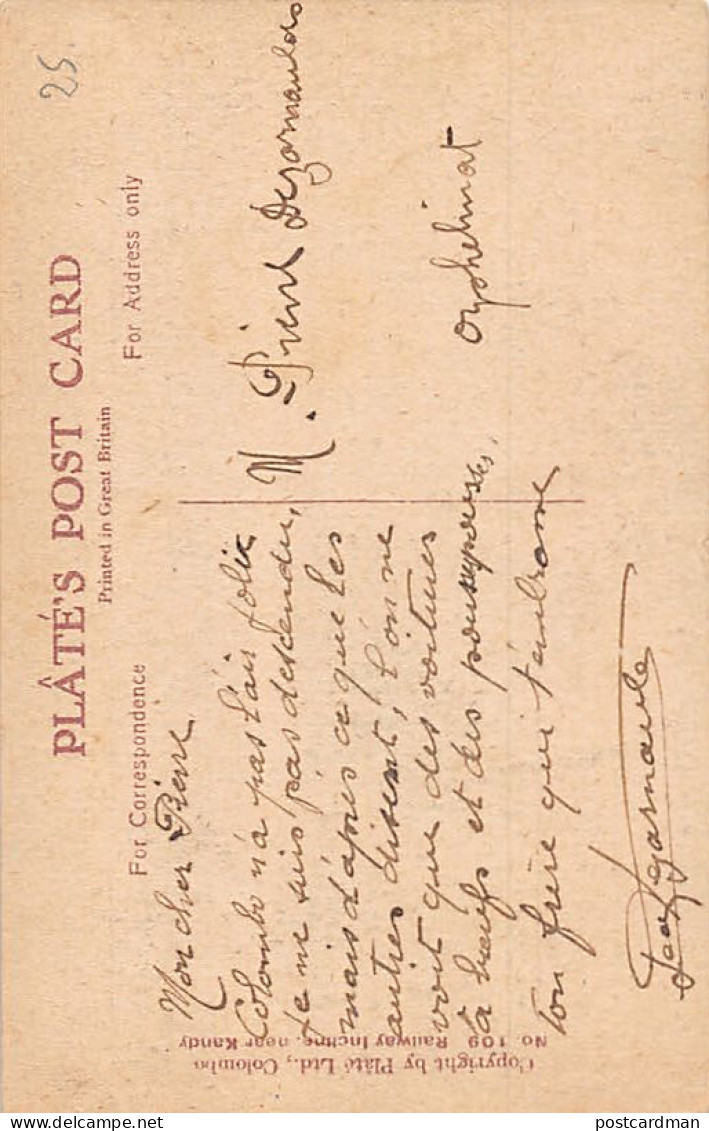 25
PLÂTÉ'S POST CARD
Printed in Great Britain
For Correspondence
For Address only
Mon cher Pierre
Colombo n'a pas l'air jolie
je ne suis pas descendu,
mais d'après ce que les
autres disent, l'on ne
voit que des voitures
à bœufs et des pousspousses,
ton frère qui t'embrasse
M. Pierre
Orphelinat
Copyright by Plâté Ltd., Colombo
No 109 Railway Incline, near Kandy
postcardman